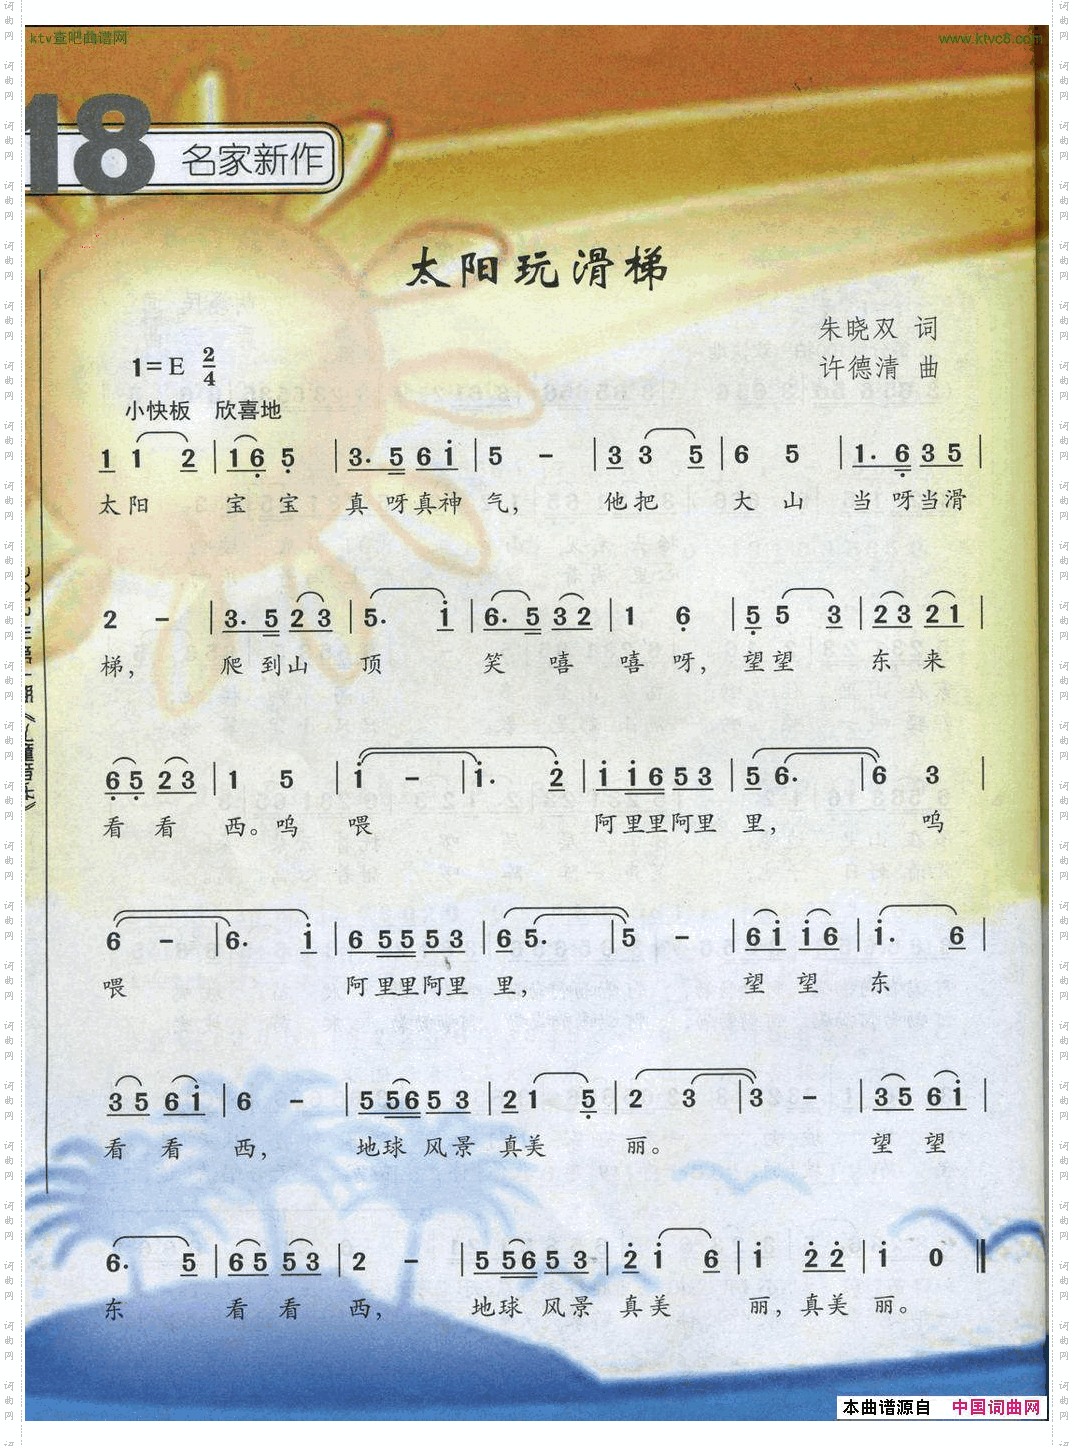 ktv查吧曲谱网 www.ktvc8.com
18 名家新作
太阳玩滑梯
朱晓双 词
许德清 曲
1=E 2/4
小快板 欣喜地
1 1 2 | 1 6̣ 5̣ | 3. 5 6 i | 5 － | 3 3 5 | 6 5 | 1. 6̣ 3 5 |
太阳 宝 宝 真 呀真神 气， 他把 大 山 当 呀当滑
2 － | 3. 5 2 3 | 5. i | 6. 5 3 2 | 1 6̣ | 5̣ 5 3 | 2 3 2 1 |
梯， 爬 到山 顶 笑 嘻 嘻 呀， 望望 东 来
6̣ 5̣ 2 3 | 1 5 | i － | i. 2̇ | i i 6 5 3 | 5 6. | 6 3 |
看 看 西。呜 喂 阿里里阿里 里， 呜
6 － | 6. i | 6 5 5 5 3 | 6 5. | 5 － | 6 i i 6 | i. 6 |
喂 阿里里阿里 里， 望 望 东
3 5 6 i | 6 － | 5 5 6 5 3 | 2 1 5̣ | 2 3 | 3 － | 3 5 6 i |
看 看 西， 地球 风景 真美 丽。 望 望
6. 5 | 6 5 5 3 | 2 － | 5 5 6 5 3 | 2̇ i 6 | i 2̇ 2̇ | i 0 ‖
东 看 看 西， 地球 风景 真美 丽，真美 丽。
本曲谱源自 中国词曲网